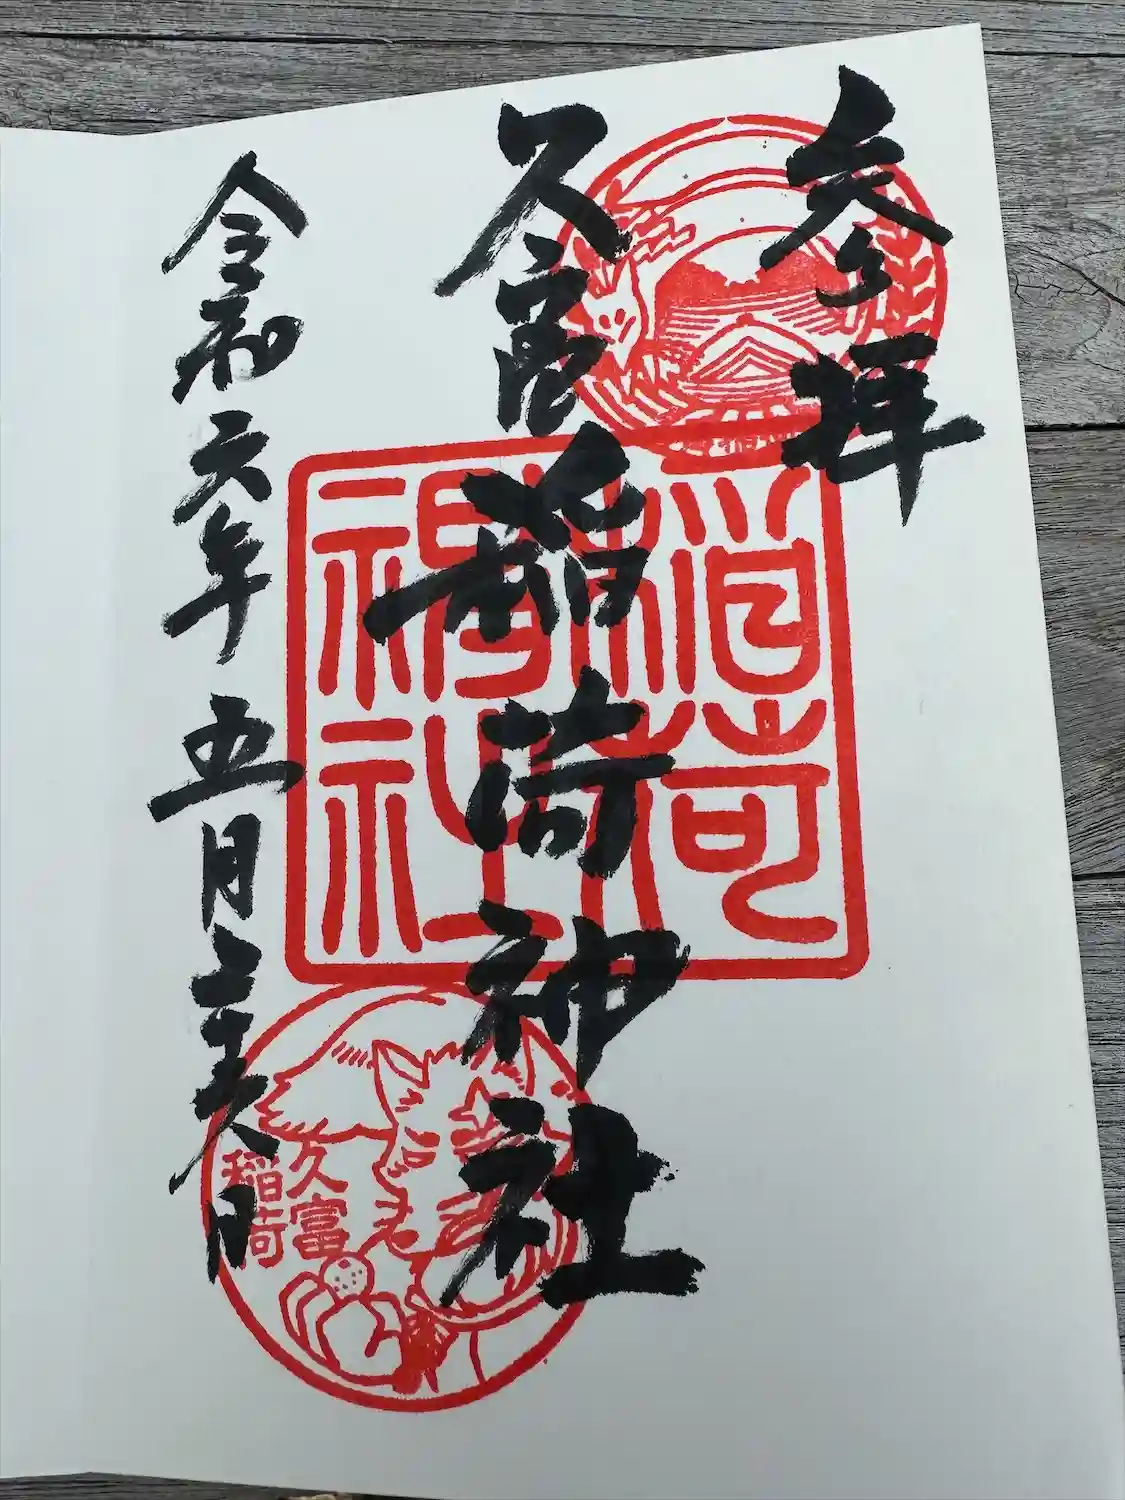 参拝
久富稲荷神社
令和六年五月日
稲荷
神社
久富
稲荷